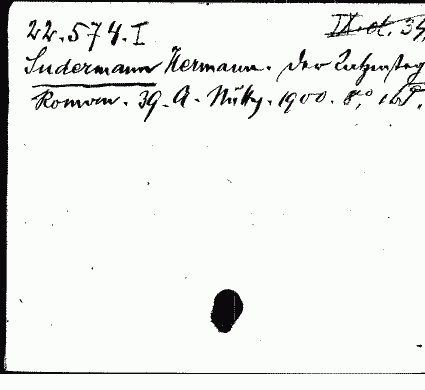 22.574.I IX.d. 34,
Sudermann Hermann. Der Katzensteg
Roman. 39. A. 1900. 8,°